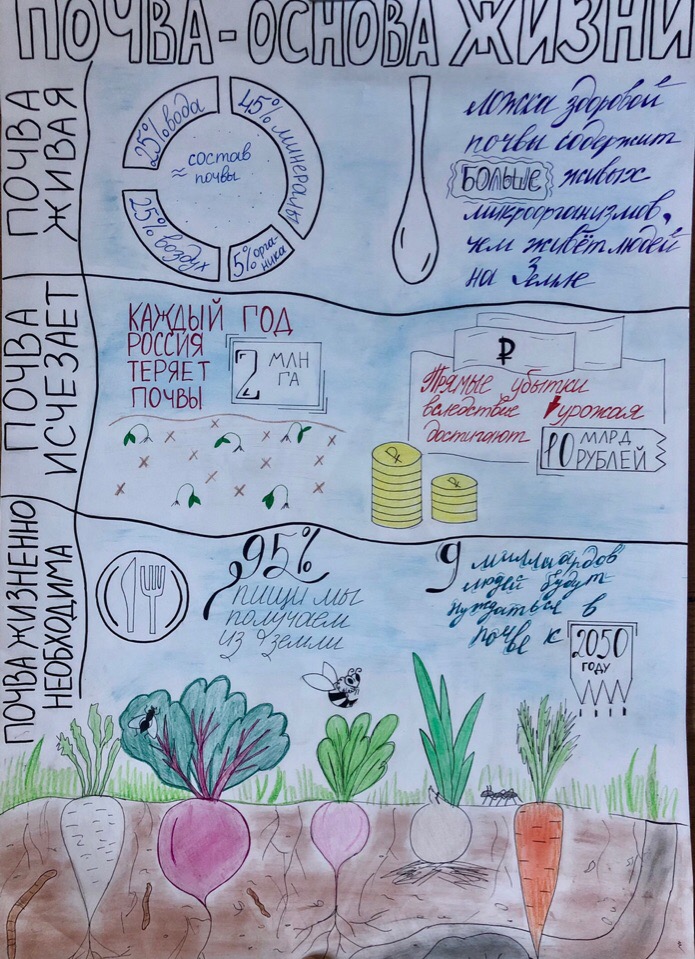 ПОЧВА - ОСНОВА ЖИЗНИ
ПОЧВА
ЖИВАЯ
25% вода
45% минералы
≈ состав
почвы
25% воздух
5% орга-
ника
ложка здоровой
почвы содержит
БОЛЬШЕ живых
микроорганизмов,
чем живёт людей
на Земле
ПОЧВА
ИСЧЕЗАЕТ
КАЖДЫЙ ГОД
РОССИЯ
ТЕРЯЕТ
ПОЧВЫ
2 МЛН
ГА
₽
Прямые убытки
вследствие урожая
достигают
10 МЛРД
РУБЛЕЙ
₽
₽
ПОЧВА ЖИЗНЕННО
НЕОБХОДИМА
95%
пищи мы
получаем
из земли
9 миллиардов
людей будут
нуждаться в
почве к
2050
ГОДУ